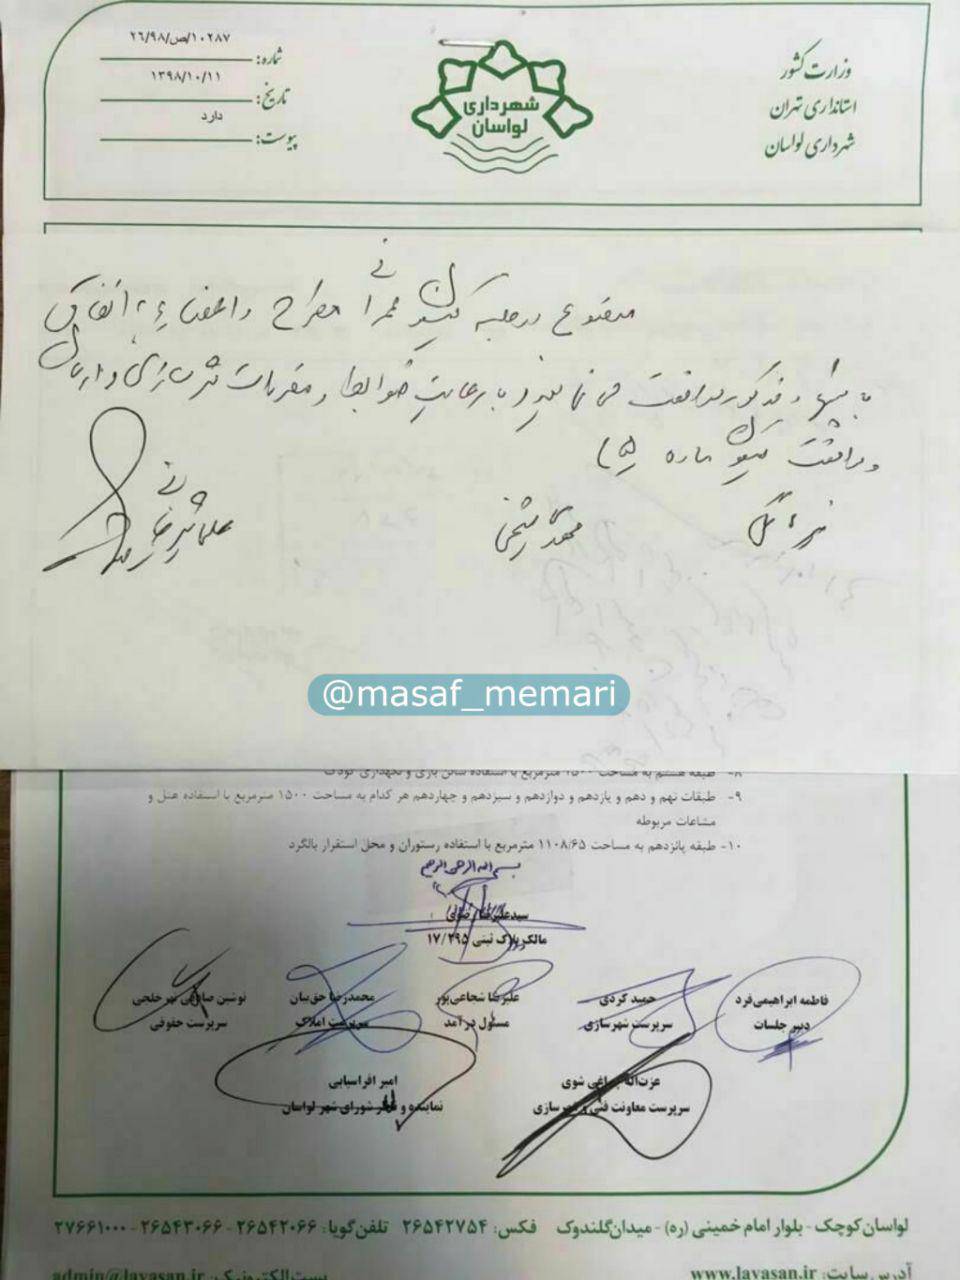 وزارت کشور
استانداری تهران
شهرداری لواسان
شهرداری
لواسان
شماره: ۲۶/۹۸/ص/۱۰۲۸۷
تاریخ: ۱۳۹۸/۱۰/۱۱
پیوست: دارد
موضوع در جلسه کمیسیون عمرانی مطرح و اعضاء به اتفاق
با پیشنهاد مذکور موافقت می نمایند و با رعایت ضوابط و مقررات شهرسازی و ارسال
موافقت کمیسیون ماده ۵)
@masaf_memari
۸- طبقه هشتم به مساحت ۱۵۰۰ مترمربع با استفاده سالن بازی و نگهداری کودک
۹- طبقات نهم و دهم و یازدهم و دوازدهم و سیزدهم و چهاردهم هر کدام به مساحت ۱۵۰۰ مترمربع با استفاده هتل و
مشاعات مربوطه
۱۰- طبقه پانزدهم به مساحت ۱۱۰۸/۶۵ مترمربع با استفاده رستوران و محل استقرار بالگرد
بسم الله الرحمن الرحیم
سیدعلیرضا رضوی
مالک پلاک ثبتی ۱۷/۲۹۵
فاطمه ابراهیمی‌فرد
دبیر جلسات
حمید کردی
سرپرست شهرسازی
علیرضا شجاعی‌پور
مسئول درآمد
محمدرضا حق‌بیان
سرپرست املاک
نوشین صادقی نهرخلجی
سرپرست حقوقی
عزت‌اله چراغی شوی
سرپرست معاونت فنی و شهرسازی
امیر افراسیابی
نماینده و ناظر شورای شهر لواسان
لواسان کوچک - بلوار امام خمینی (ره) - میدان گلندوک فکس: ۲۶۵۴۲۷۵۴ تلفن گویا: ۲۶۵۴۲۰۶۶ - ۲۶۵۴۳۰۶۶ - ۲۷۶۶۱۰۰۰
آدرس سایت: www.lavasan.ir پست الکترونیک: admin@lavasan.ir